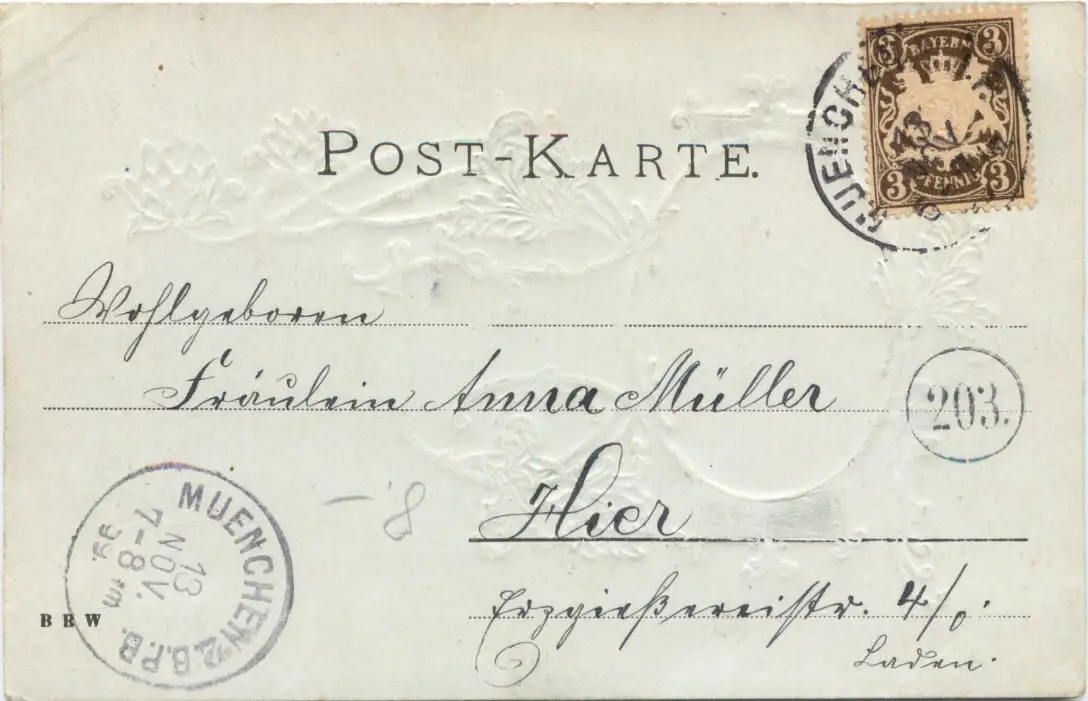 POST-KARTE.
3 BAYERN 3
3 PFENNIG 3
MUENCHEN
Wohlgeboren
Fräulein Anna Müller
203.
Hier
- 8
MUENCHEN 2. B.P.B.
13
NOV.
7-8 Vm
99.
BRW
Erzgießereistr. 4/0.
Laden.